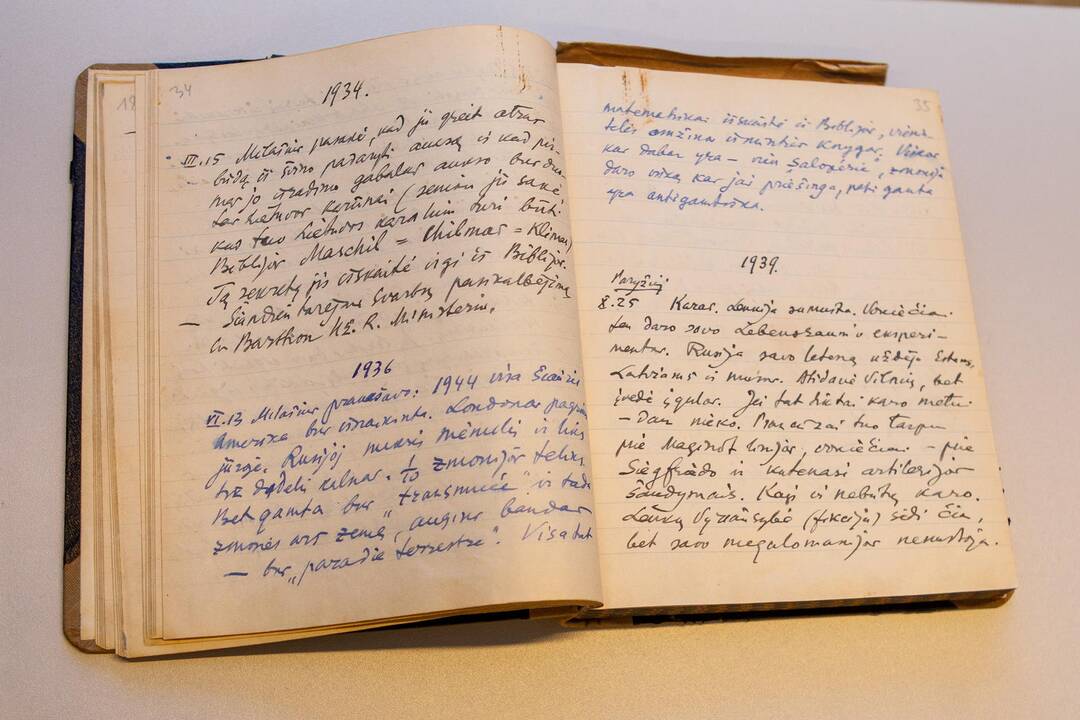 34
1934.
III.15 Milašius pasakė, kad jis greit atras
būdą iš švino padaryti auksą ir kad pir-
mas jo išradimo gabalas aukso bus duo-
tas Lietuvos karūnai (seniau jis sakė
kas tuo Lietuvos karalium turi būti.
Biblijos Maschil = Chilmas = Klimas)
Tą sekretą jis išskaitė irgi iš Biblijos.
— Šiandien turėjau svarbų pasikalbėjimą
su Bartkom UŽ. R. Ministeriu.
1936
VI.13 Milašius pranašavo: 1944 visa Šiaurės
Amerika bus išnaikinta. Londonas pagrims
jūroje. Rusijoj nukris mėnulis ir liks
tik didelis kalnas. 1/10 žmonijos teliks.
Bet gamta bus „transmuée" ir tada
žmonės ars žemę, augins bandas
— bus „paradis terrestre". Visa tat
35
matematikai išskaitė iš Biblijos, vienin-
telės amžina išminties knygos. Viskas
kas dabar yra — vien „saloperie", žmonija
daro viską kas jai priešinga, pati gamta
yra antigamtiška.
1939.
Paryžiuj
X.25 Karas. Lenkija sumušta. Vokiečiai
ten daro savo Lebensraum'o eksperi-
mentus. Rusija savo leteną uždėjo Estams,
Latviams ir mums. Atidavė Vilnių, bet
įvedė įgulas. Jei tat tiktai karo metu
— dar nieko. Prancūzai tuo tarpu
prie Maginot linijos, vokiečiai — prie
Siegfriedo ir katenasi artilerijos
šaudymais. Kaip ir nebūtų karo.
Lenkų Vyriausybė (fikcija) sėdi čia,
bet savo megalomanijos nenustoja.